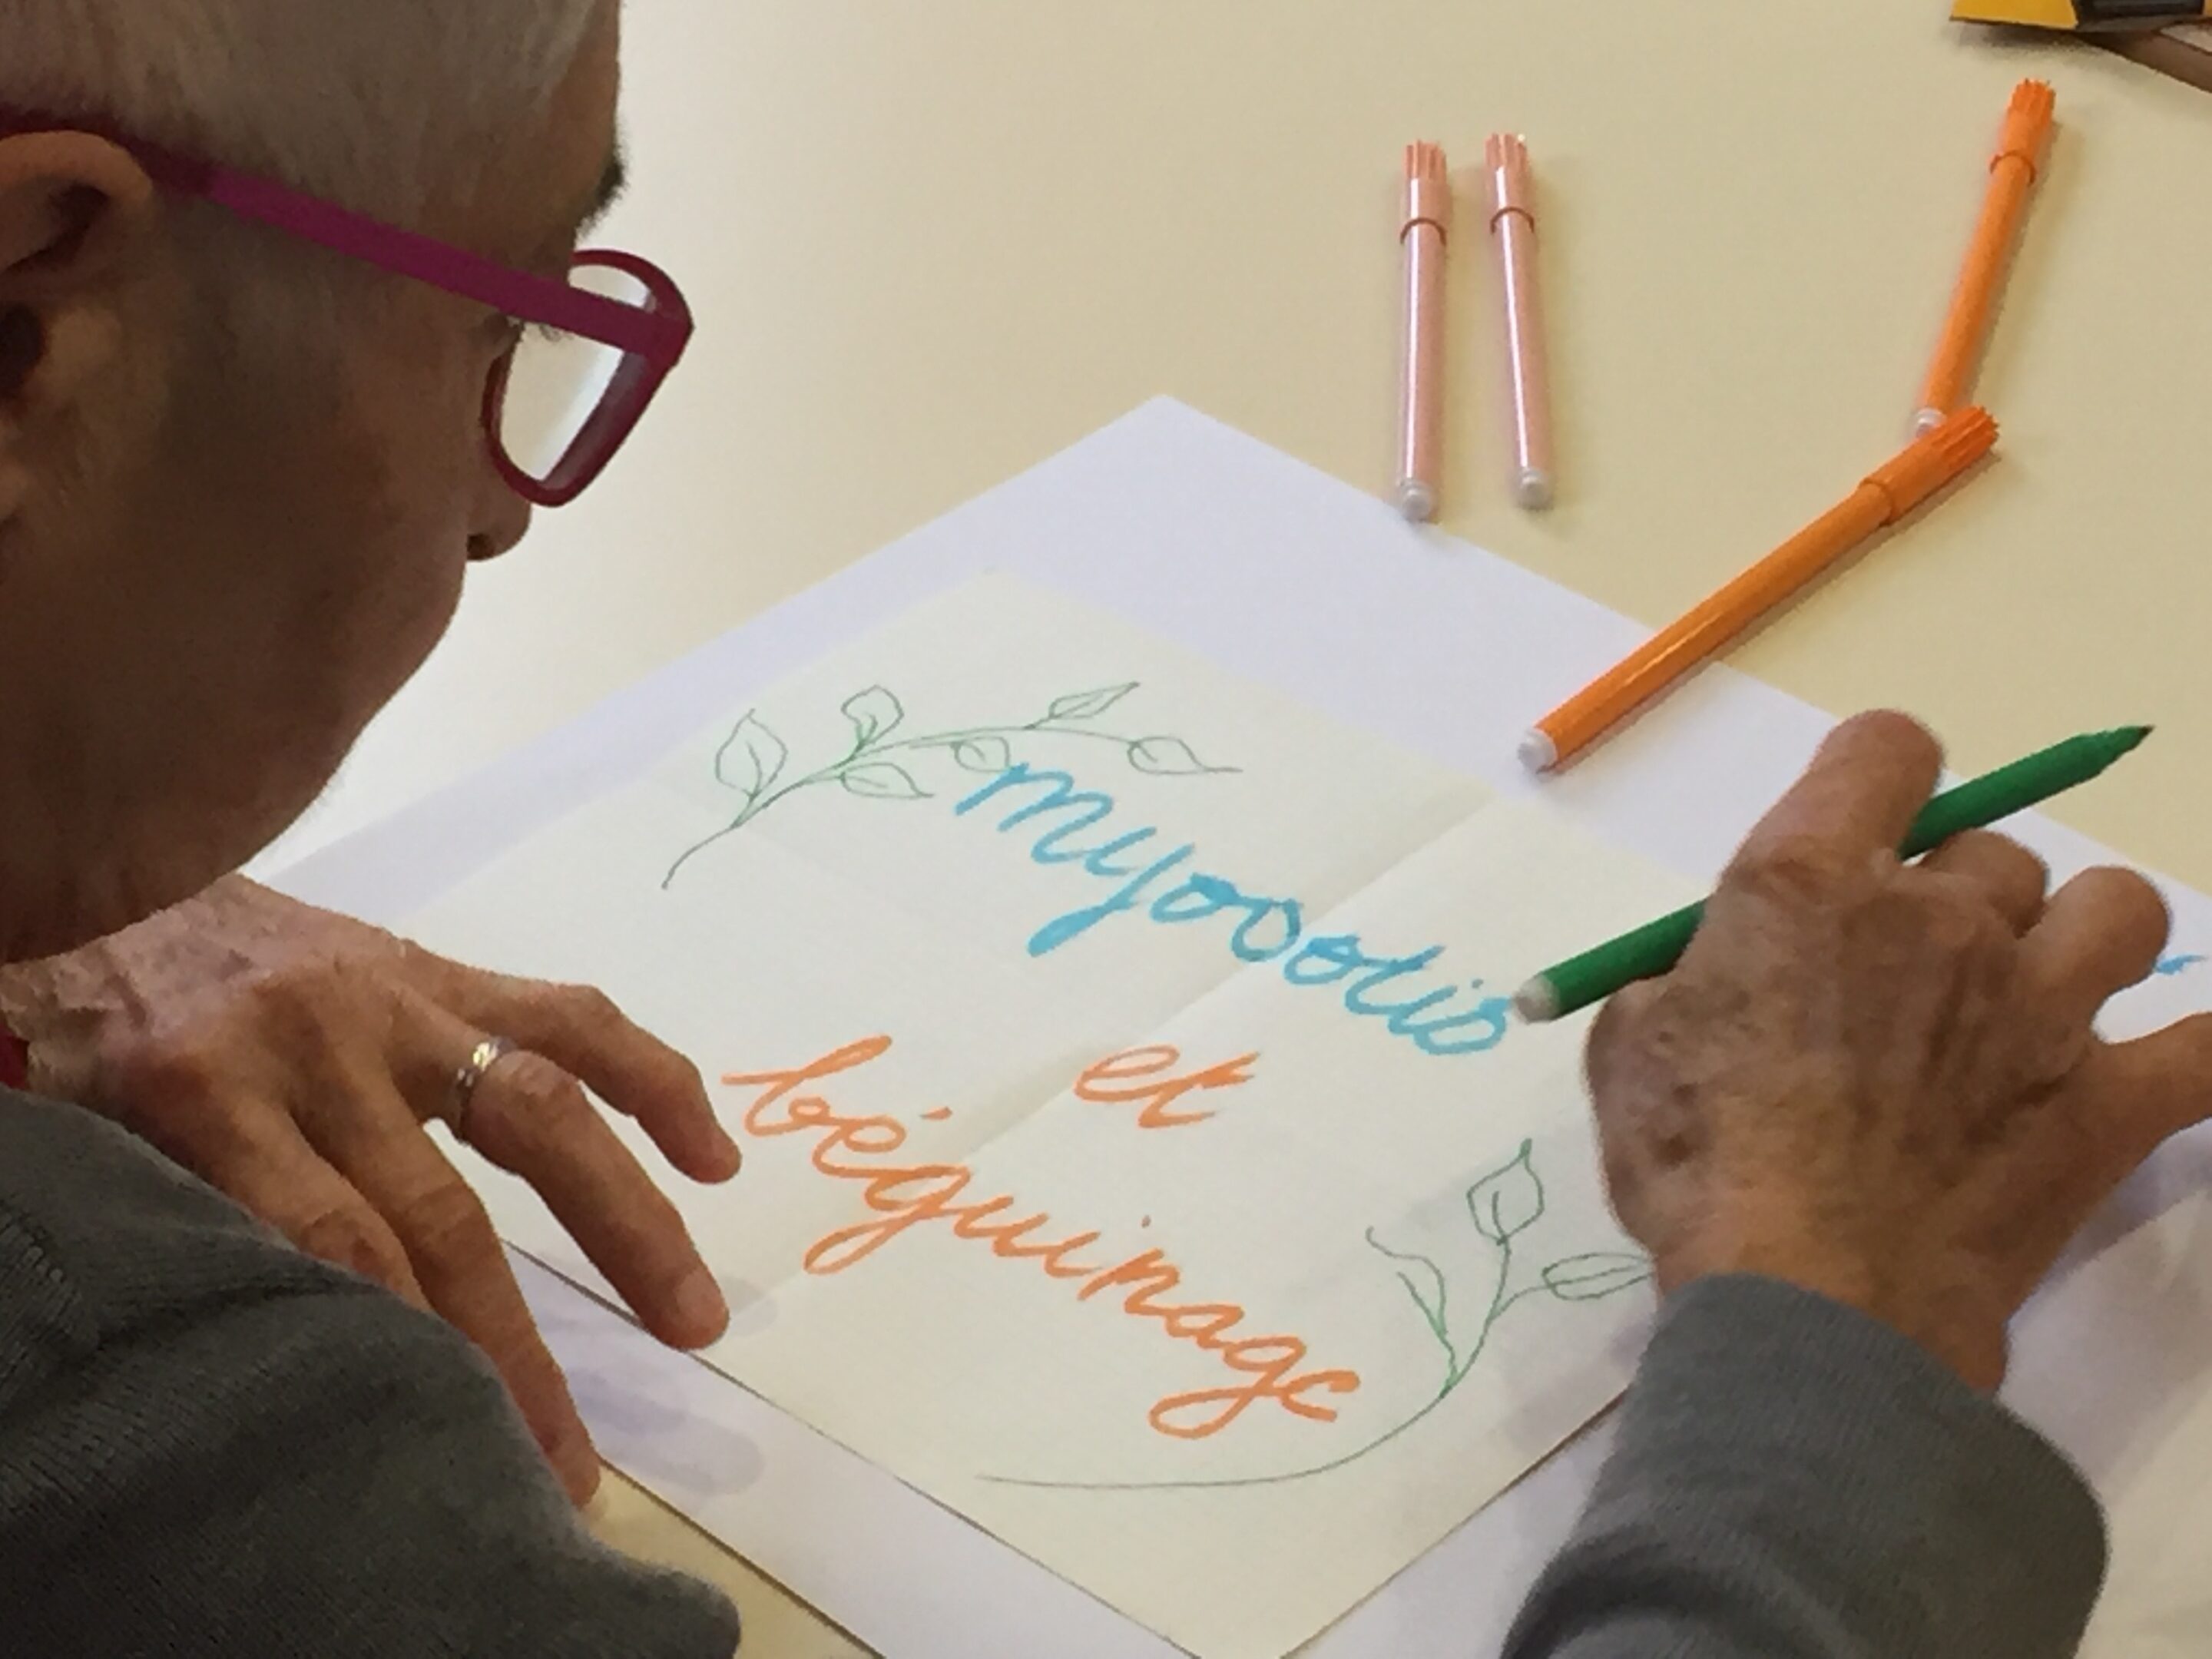 myosotis
et
béguinage